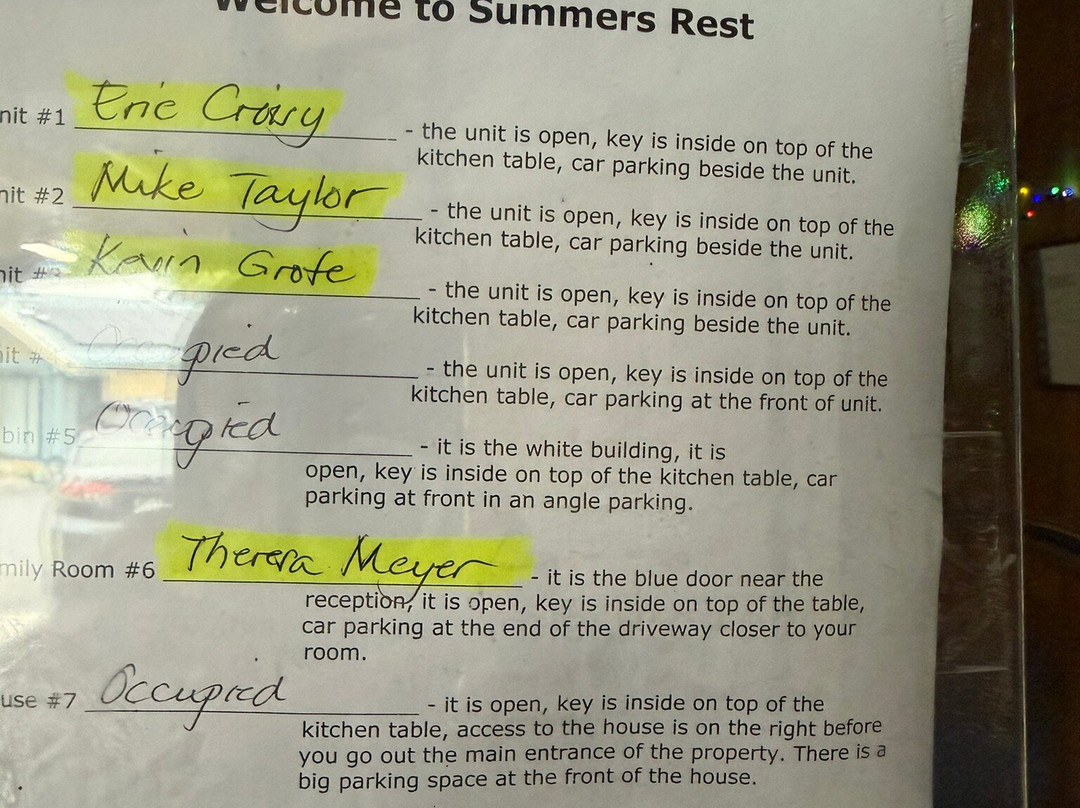 Welcome to Summers Rest
nit #1 Eric Croisy - the unit is open, key is inside on top of the
kitchen table, car parking beside the unit.
nit #2 Mike Taylor - the unit is open, key is inside on top of the
kitchen table, car parking beside the unit.
nit #3 Kevin Grofe - the unit is open, key is inside on top of the
kitchen table, car parking beside the unit.
nit # Occupied - the unit is open, key is inside on top of the
kitchen table, car parking at the front of unit.
bin #5 Occupied - it is the white building, it is
open, key is inside on top of the kitchen table, car
parking at front in an angle parking.
mily Room #6 Theresa Meyer - it is the blue door near the
reception, it is open, key is inside on top of the table,
car parking at the end of the driveway closer to your
room.
use #7 Occupied - it is open, key is inside on top of the
kitchen table, access to the house is on the right before
you go out the main entrance of the property. There is a
big parking space at the front of the house.